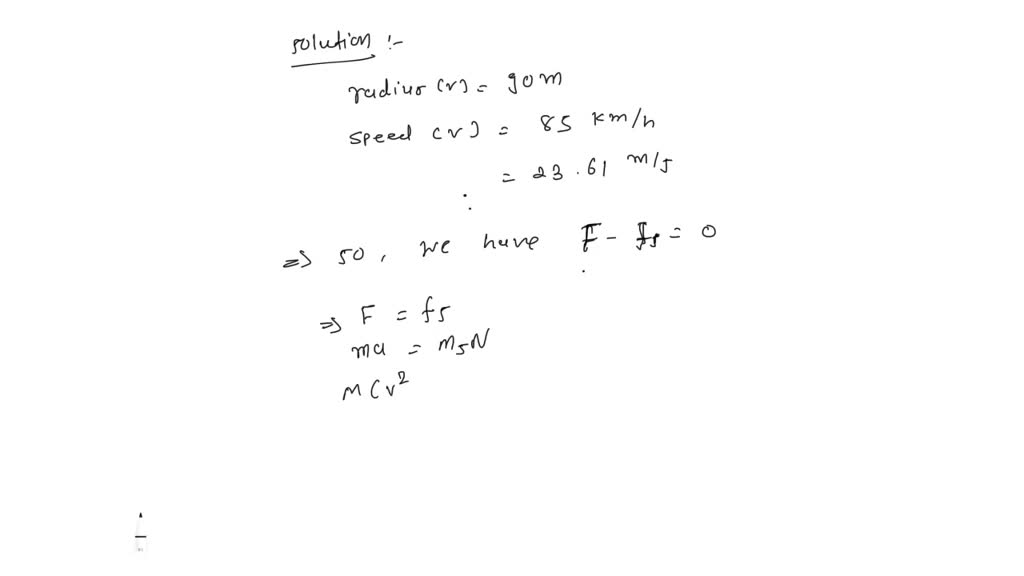 solution :-
radius (r) = 90m
speed (v) = 85 km/h
= 23.61 m/s
⇒ so, we have F - fs = 0
⇒ F = fs
ma = MsN
M(v²